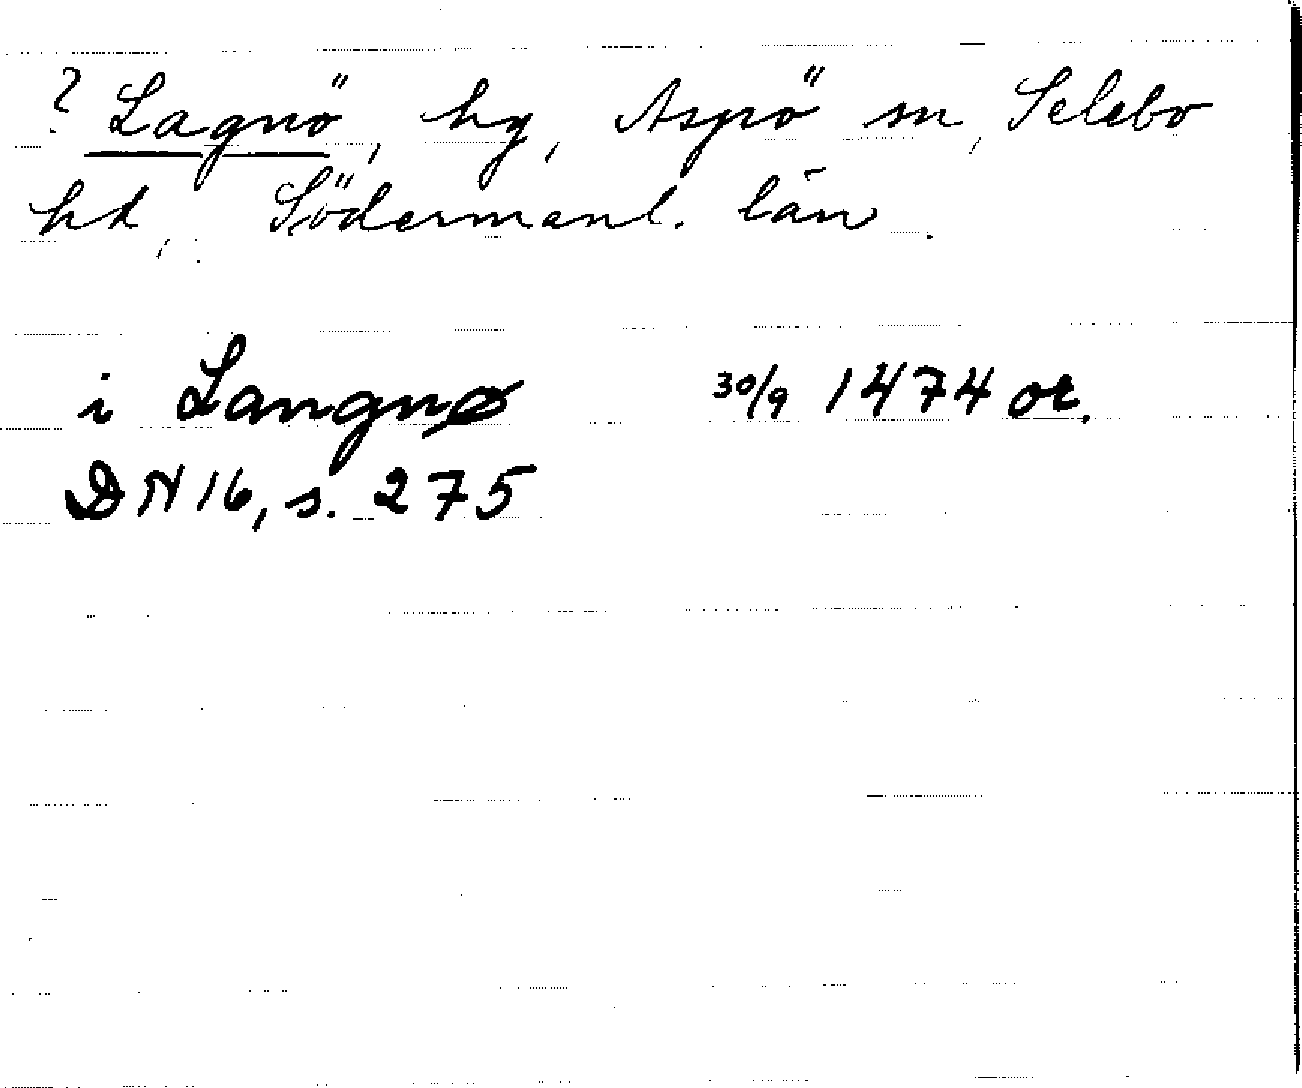 ? Lagnö, hg, Aspö sn, Selebo
hd, Södermanl. län.
i Langnø 30/9 1474 or.
DN 16, s. 275